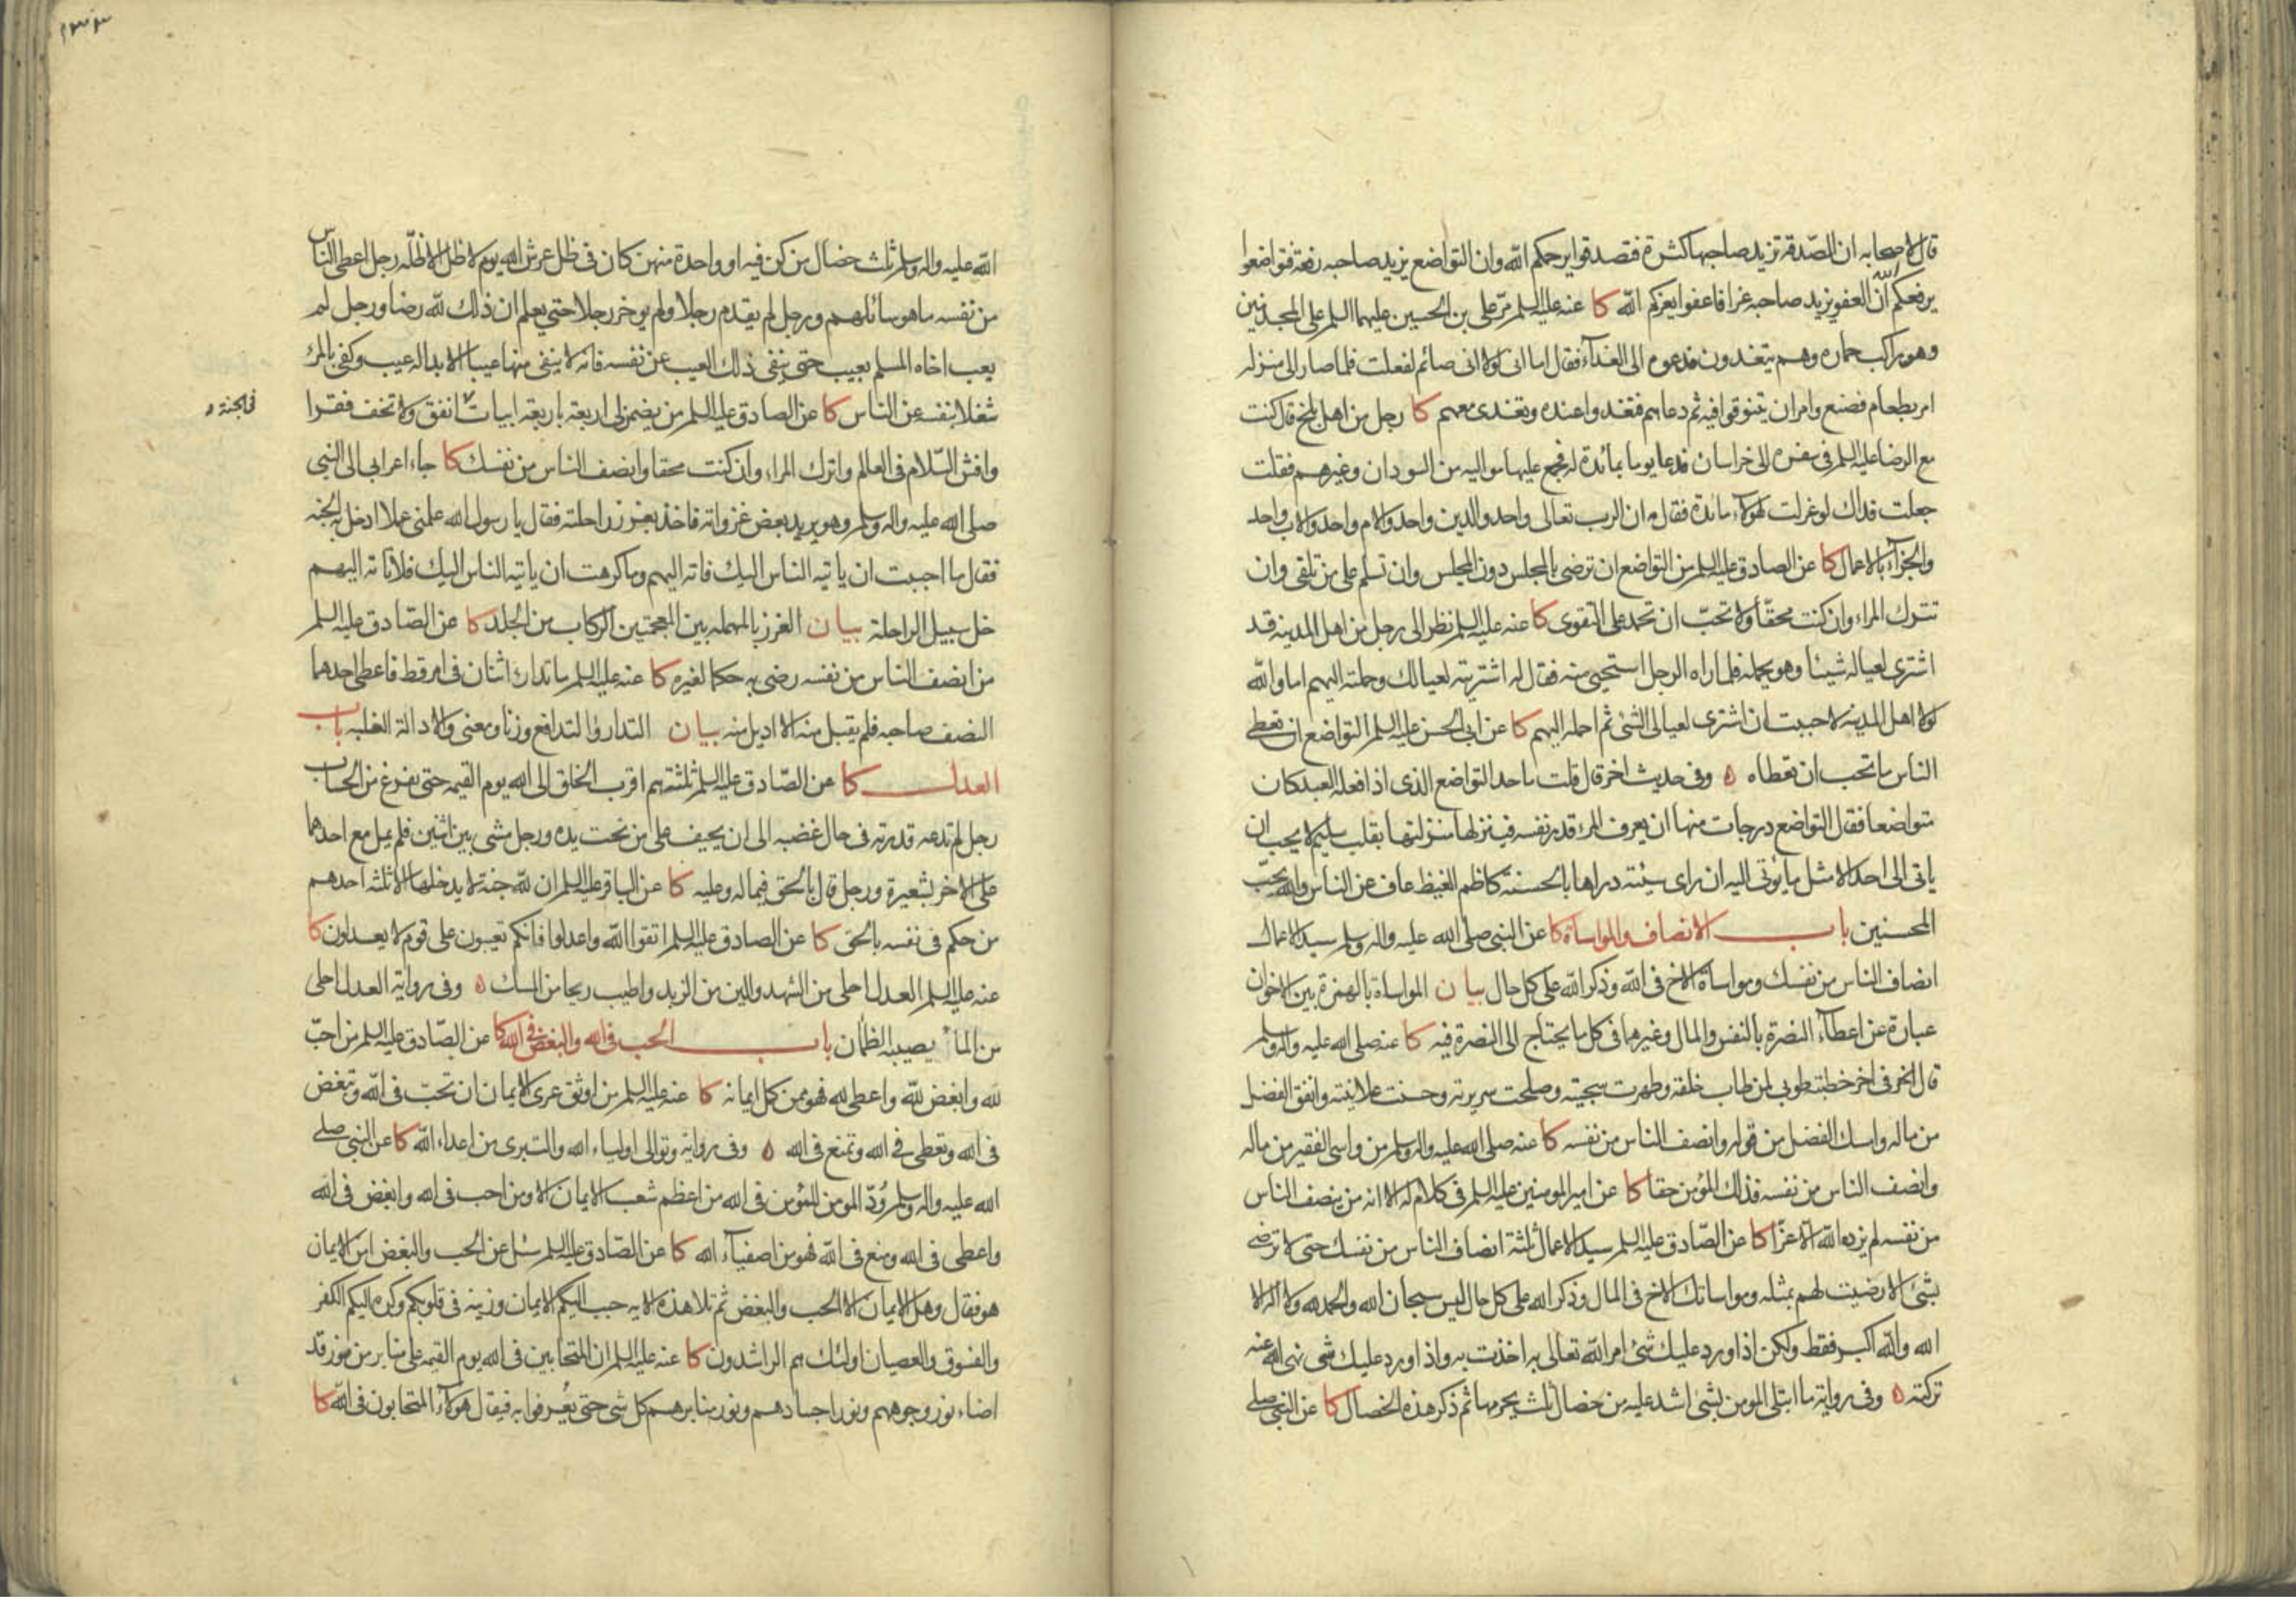 قال لاصحابه ان الصّدقة تزيد صاحبها كثرة فتصدقوا يرحمكم اللّه وان التواضع يزيد صاحبه رفعة فتواضعوا
يرفعكم اللّه ان العفو يزيد صاحبه عزا فاعفوا يعزكم اللّه كا عنه عليه السلم مرّ على بن الحسين عليهما السلم على المجذمين
وهو راكب حماره وهم يتغدون فدعوه الى الغداء فقال اما انى لولا انى صائم لفعلت فلما صار الى منزله
امر بطعام فصنع وامر ان يتنوقوا فيه ثم دعاهم فتغدوا عنده وتغدى معهم كا رجل من اهل بلخ قال كنت
مع الرضا عليه السلم فى سفره الى خراسان فدعا يوما بمائدة له فجمع عليها مواليه من السودان وغيرهم فقلت
جعلت فداك لو عزلت لهؤلاء مائدة فقال مه ان الرب تعالى واحد والدين واحد والام واحد والاب واحد
والجزاء بالاعمال كا عن الصادق عليه السلم من التواضع ان ترضى بالمجلس دون المجلس وان تسلم على من تلقى وان
تترك المراء وان كنت محقّا ولا تحبّ ان تحمد على التقوى كا عنه عليه السلم نظر الى رجل من اهل المدينة قد
اشترى لعياله شيئا وهو يحمله فلما راه الرجل استحيى منه فقال له اشتريته لعيالك وحملته اليهم اما واللّه
لولا اهل المدينة لاحببت ان اشترى لعيالى الشئ ثم احمله اليهم كا عن ابى الحسن عليه السلم التواضع ان تعطى
الناس ما تحب ان تعطاه ه وفى حديث اخر قال قلت ما حد التواضع الذى اذا فعله العبد كان
متواضعا فقال التواضع درجات منها ان يعرف المرء قدر نفسه فينزلها منزلتها بقلب سليم لا يحب ان
ياتى الى احد الا مثل ما يؤتى اليه ان راى سيئة دراها بالحسنة كاظم الغيظ عاف عن الناس واللّه يحبّ
المحسنين باب الانصاف والمواساة كا عن النبى صلى اللّه عليه واله وسلم سيد الاعمال
انصاف الناس من نفسك ومواساة الاخ فى اللّه وذكر اللّه على كل حال بيان المواساة بالهمزة بين الاخوان
عبارة عن اعطاء النصرة بالنفس والمال وغيرهما فى كل ما يحتاج الى النصرة فيه كا عنه صلى اللّه عليه واله وسلم
قال فى اخر خطبته طوبى لمن طاب خلقه وطهرت سجيته وصلحت سريرته وحسنت علانيته وانفق الفضل
من ماله وامسك الفضل من قوله وانصف الناس من نفسه كا عنه صلى اللّه عليه واله وسلم من واسى الفقير من ماله
وانصف الناس من نفسه فذلك المؤمن حقا كا عن امير المومنين عليه السلم فى كلام له الا انه من ينصف الناس
من نفسه لم يزده اللّه الا عزّا كا عن الصّادق عليه السلم سيد الاعمال ثلثة انصاف الناس من نفسك حتى لا ترضى
بشئ الا رضيت لهم بمثله ومواساتك الاخ فى المال وذكر اللّه على كل حال ليس سبحان اللّه والحمد للّه ولا اله الا
اللّه واللّه اكبر فقط ولكن اذا ورد عليك شئ امر اللّه تعالى به اخذت به واذا ورد عليك شئ نهى اللّه عنه
تركته ه وفى رواية ما ابتلى المومن بشئ اشد عليه من خصال ثلث يحرمها ثم ذكر هذه الخصال كا عن النبى صلى
١٣٣
اللّه عليه واله وسلم ثلث خصال من كن فيه او واحدة منهن كان فى ظل عرش اللّه يوم لا ظل الا ظلّه رجل اعطى الناس
من نفسه ما هو سائلهم ورجل لم يقدم رجلا ولم يوخر رجلا حتى يعلم ان ذلك للّه رضا ورجل لم
يعب اخاه المسلم بعيب حتى ينفى ذلك العيب عن نفسه فانه لا ينفى منها عيبا الا بدا له عيب وكفى بالمرء
شغلا بنفسه عن الناس كا عن الصادق عليه السلم من يضمن لى اربعة باربعة ابيات انفق ولا تخف فقرا
فى الجنة
وافش السّلام فى العالم واترك المراء وان كنت محقا وانصف الناس من نفسك كا جاء اعرابى الى النبى
صلى اللّه عليه واله وسلم وهو يريد بعض غزواته فاخذ بغرز راحلته فقال يا رسول اللّه علمنى عملا ادخل به الجنة
فقال ما احببت ان ياتيه الناس اليك فاته اليهم وما كرهت ان ياتيه الناس اليك فلا تاته اليهم
خل سبيل الراحلة بيان الغرز بالمهملة بين المعجمتين الركاب من الجلد كا عن الصّادق عليه السلم
من انصف الناس من نفسه رضى به حكما لغيره كا عنه عليه السلم ما تدارء اثنان فى امر قط فاعطى احدهما
النصف صاحبه فلم يقبل منه الا اديل منه بيان التدارؤ التدافع وزنا ومعنى والادالة الغلبة باب
العدل كا عن الصّادق عليه السلم ثلثة هم اقرب الخلق الى اللّه يوم القيمة حتى يفرغ من الحساب
رجل لم تدعه قدرته فى حال غضبه الى ان يحيف على من تحت يده ورجل مشى بين اثنين فلم يمل مع احدهما
على الاخر بشعيرة ورجل قال بالحق فيما له وعليه كا عن الباقر عليه السلم ان للّه جنة لا يدخلها الا ثلثة احدهم
من حكم فى نفسه بالحق كا عن الصادق عليه السلم اتقوا اللّه واعدلوا فانكم تعيبون على قوم لا يعدلون كا
عنه عليه السلم العدل احلى من الشهد والين من الزبد واطيب ريحا من المسك ه وفى رواية العدل احلى
من الماء يصيبه الظمأن باب الحب فى اللّه والبغض فى اللّه كا عن الصّادق عليه السلم من احبّ
للّه وابغض للّه واعطى للّه فهو ممن كمل ايمانه كا عنه عليه السلم من اوثق عرى الايمان ان تحبّ فى اللّه وتبغض
فى اللّه وتعطى فى اللّه وتمنع فى اللّه ه وفى رواية وتوالى اولياء اللّه والتبرى من اعداء اللّه كا عن النبى صلى
اللّه عليه واله وسلم وُدّ المومن للمؤمن فى اللّه من اعظم شعب الايمان الا ومن احب فى اللّه وابغض فى اللّه
واعطى فى اللّه ومنع فى اللّه فهو من اصفياء اللّه كا عن الصّادق عليه السلم سئل عن الحب والبغض امن الايمان
هو فقال وهل الايمان الا الحب والبغض ثم تلا هذه الاية حبب اليكم الايمان وزينه فى قلوبكم وكره اليكم الكفر
والفسوق والعصيان اولئك هم الراشدون كا عنه عليه السلم ان المتحابين فى اللّه يوم القيمة على منابر من نور قد
اضاء نور وجوههم ونور اجسادهم ونور منابرهم كل شئ حتى يُعرفوا به فيقال هؤلاء المتحابون فى اللّه كا